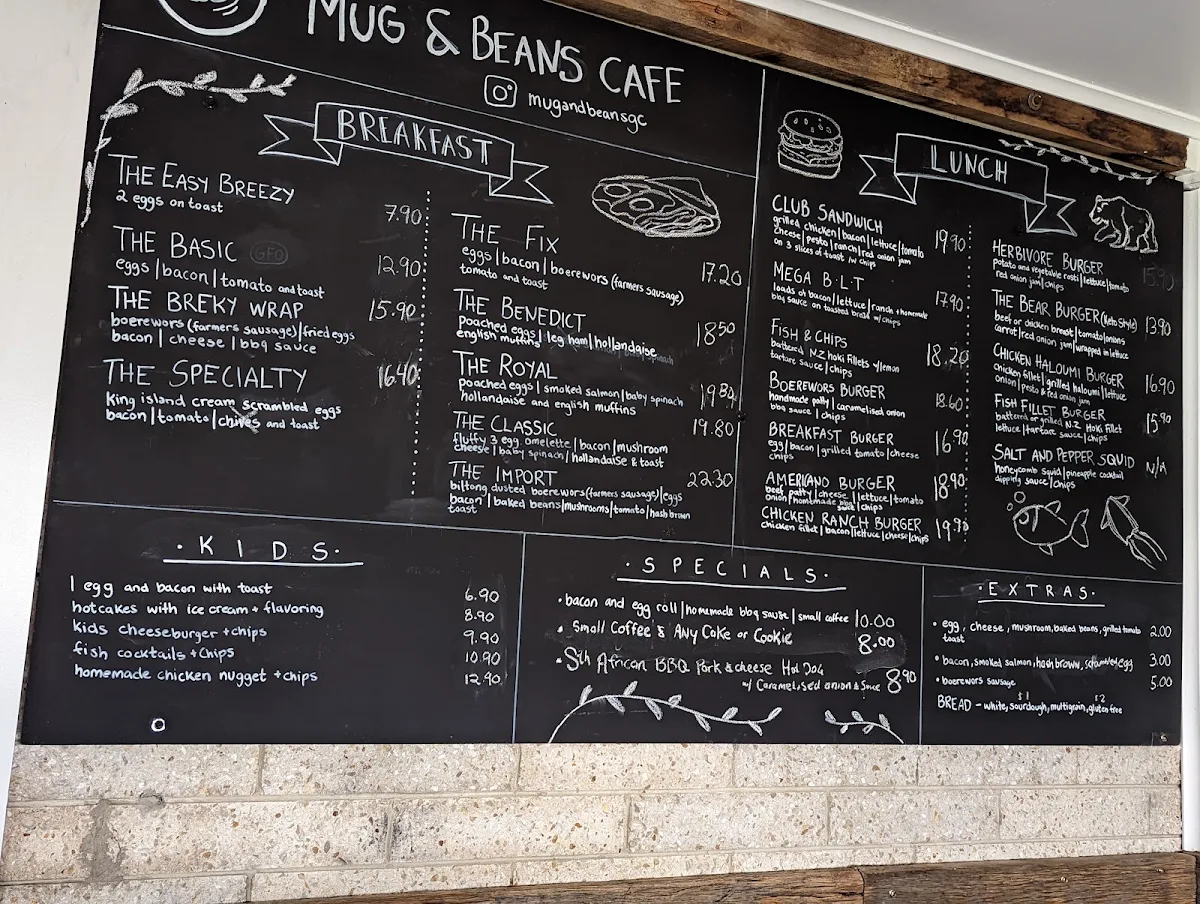 MUG & BEANS CAFE
mugandbeansgc
BREAKFAST
THE EASY BREEZY
2 eggs on toast 7.90
THE BASIC GFO
eggs | bacon | tomato and toast 12.90
THE BREKY WRAP 15.90
boerewors (farmers sausage) | fried eggs
bacon | cheese | bbq sauce
THE SPECIALTY 16.40
King island cream scrambled eggs
bacon | tomato | chives and toast
THE FIX
eggs | bacon | boerewors (farmers sausage) 17.20
tomato and toast
THE BENEDICT
poached eggs | leg ham | hollandaise 18.50
english muffins
THE ROYAL
poached eggs | smoked salmon | baby spinach 19.80
hollandaise and english muffins
THE CLASSIC 19.80
fluffy 3 egg omelette | bacon | mushroom
cheese | baby spinach | hollandaise & toast
THE IMPORT 22.30
biltong dusted boerewors (farmers sausage) | eggs
bacon | baked beans | mushrooms | tomato | hash brown
toast
LUNCH
CLUB SANDWICH
grilled chicken | bacon | lettuce | tomato 19.90
cheese | pesto | ranch | red onion jam
on 3 slices of toast /w chips
MEGA B·L·T
loads of bacon | lettuce | ranch + homemade 17.90
bbq sauce on toasted bread w/ chips
FISH & CHIPS
battered NZ hoki fillets | lemon 18.20
tartare sauce | chips
BOEREWORS BURGER
handmade patty | caramelised onion 18.60
bbq sauce | chips
BREAKFAST BURGER
egg | bacon | grilled tomato | cheese 16.90
chips
AMERICANO BURGER
beef patty | cheese | lettuce | tomato 18.90
onion | homemade bbq sauce | chips
CHICKEN RANCH BURGER
chicken fillet | bacon | lettuce | cheese | chips 19.90
HERBIVORE BURGER 15.90
potato and vegetable rosti | lettuce | tomato
red onion jam | chips
THE BEAR BURGER (Keto Style) 13.90
beef or chicken breast | tomato | onions
carrot | red onion jam | wrapped in lettuce
CHICKEN HALOUMI BURGER
chicken fillet | grilled haloumi | lettuce 16.90
onion | pesto & red onion jam
FISH FILLET BURGER
battered or grilled N.Z. Hoki Fillet 15.90
lettuce | tartare sauce | chips
SALT AND PEPPER SQUID N/A
honeycomb squid | pineapple cocktail
dipping sauce | chips
· KIDS ·
1 egg and bacon with toast 6.90
hotcakes with ice cream + flavoring 8.90
kids cheeseburger + chips 9.90
fish cocktails + chips 10.90
homemade chicken nugget + chips 12.90
· SPECIALS ·
• bacon and egg roll | homemade bbq sauce | small coffee 10.00
• Small Coffee & Any Cake or Cookie 8.00
• Sth African BBQ Pork & cheese Hot Dog
w/ Caramelised onion & Sauce 8.90
· EXTRAS ·
• egg, cheese, mushroom, baked beans, grilled tomato 2.00
toast
• bacon, smoked salmon, hash brown, scrambled egg 3.00
• boerewors sausage 5.00
$1 $2
BREAD - white, sourdough, multigrain, gluten free